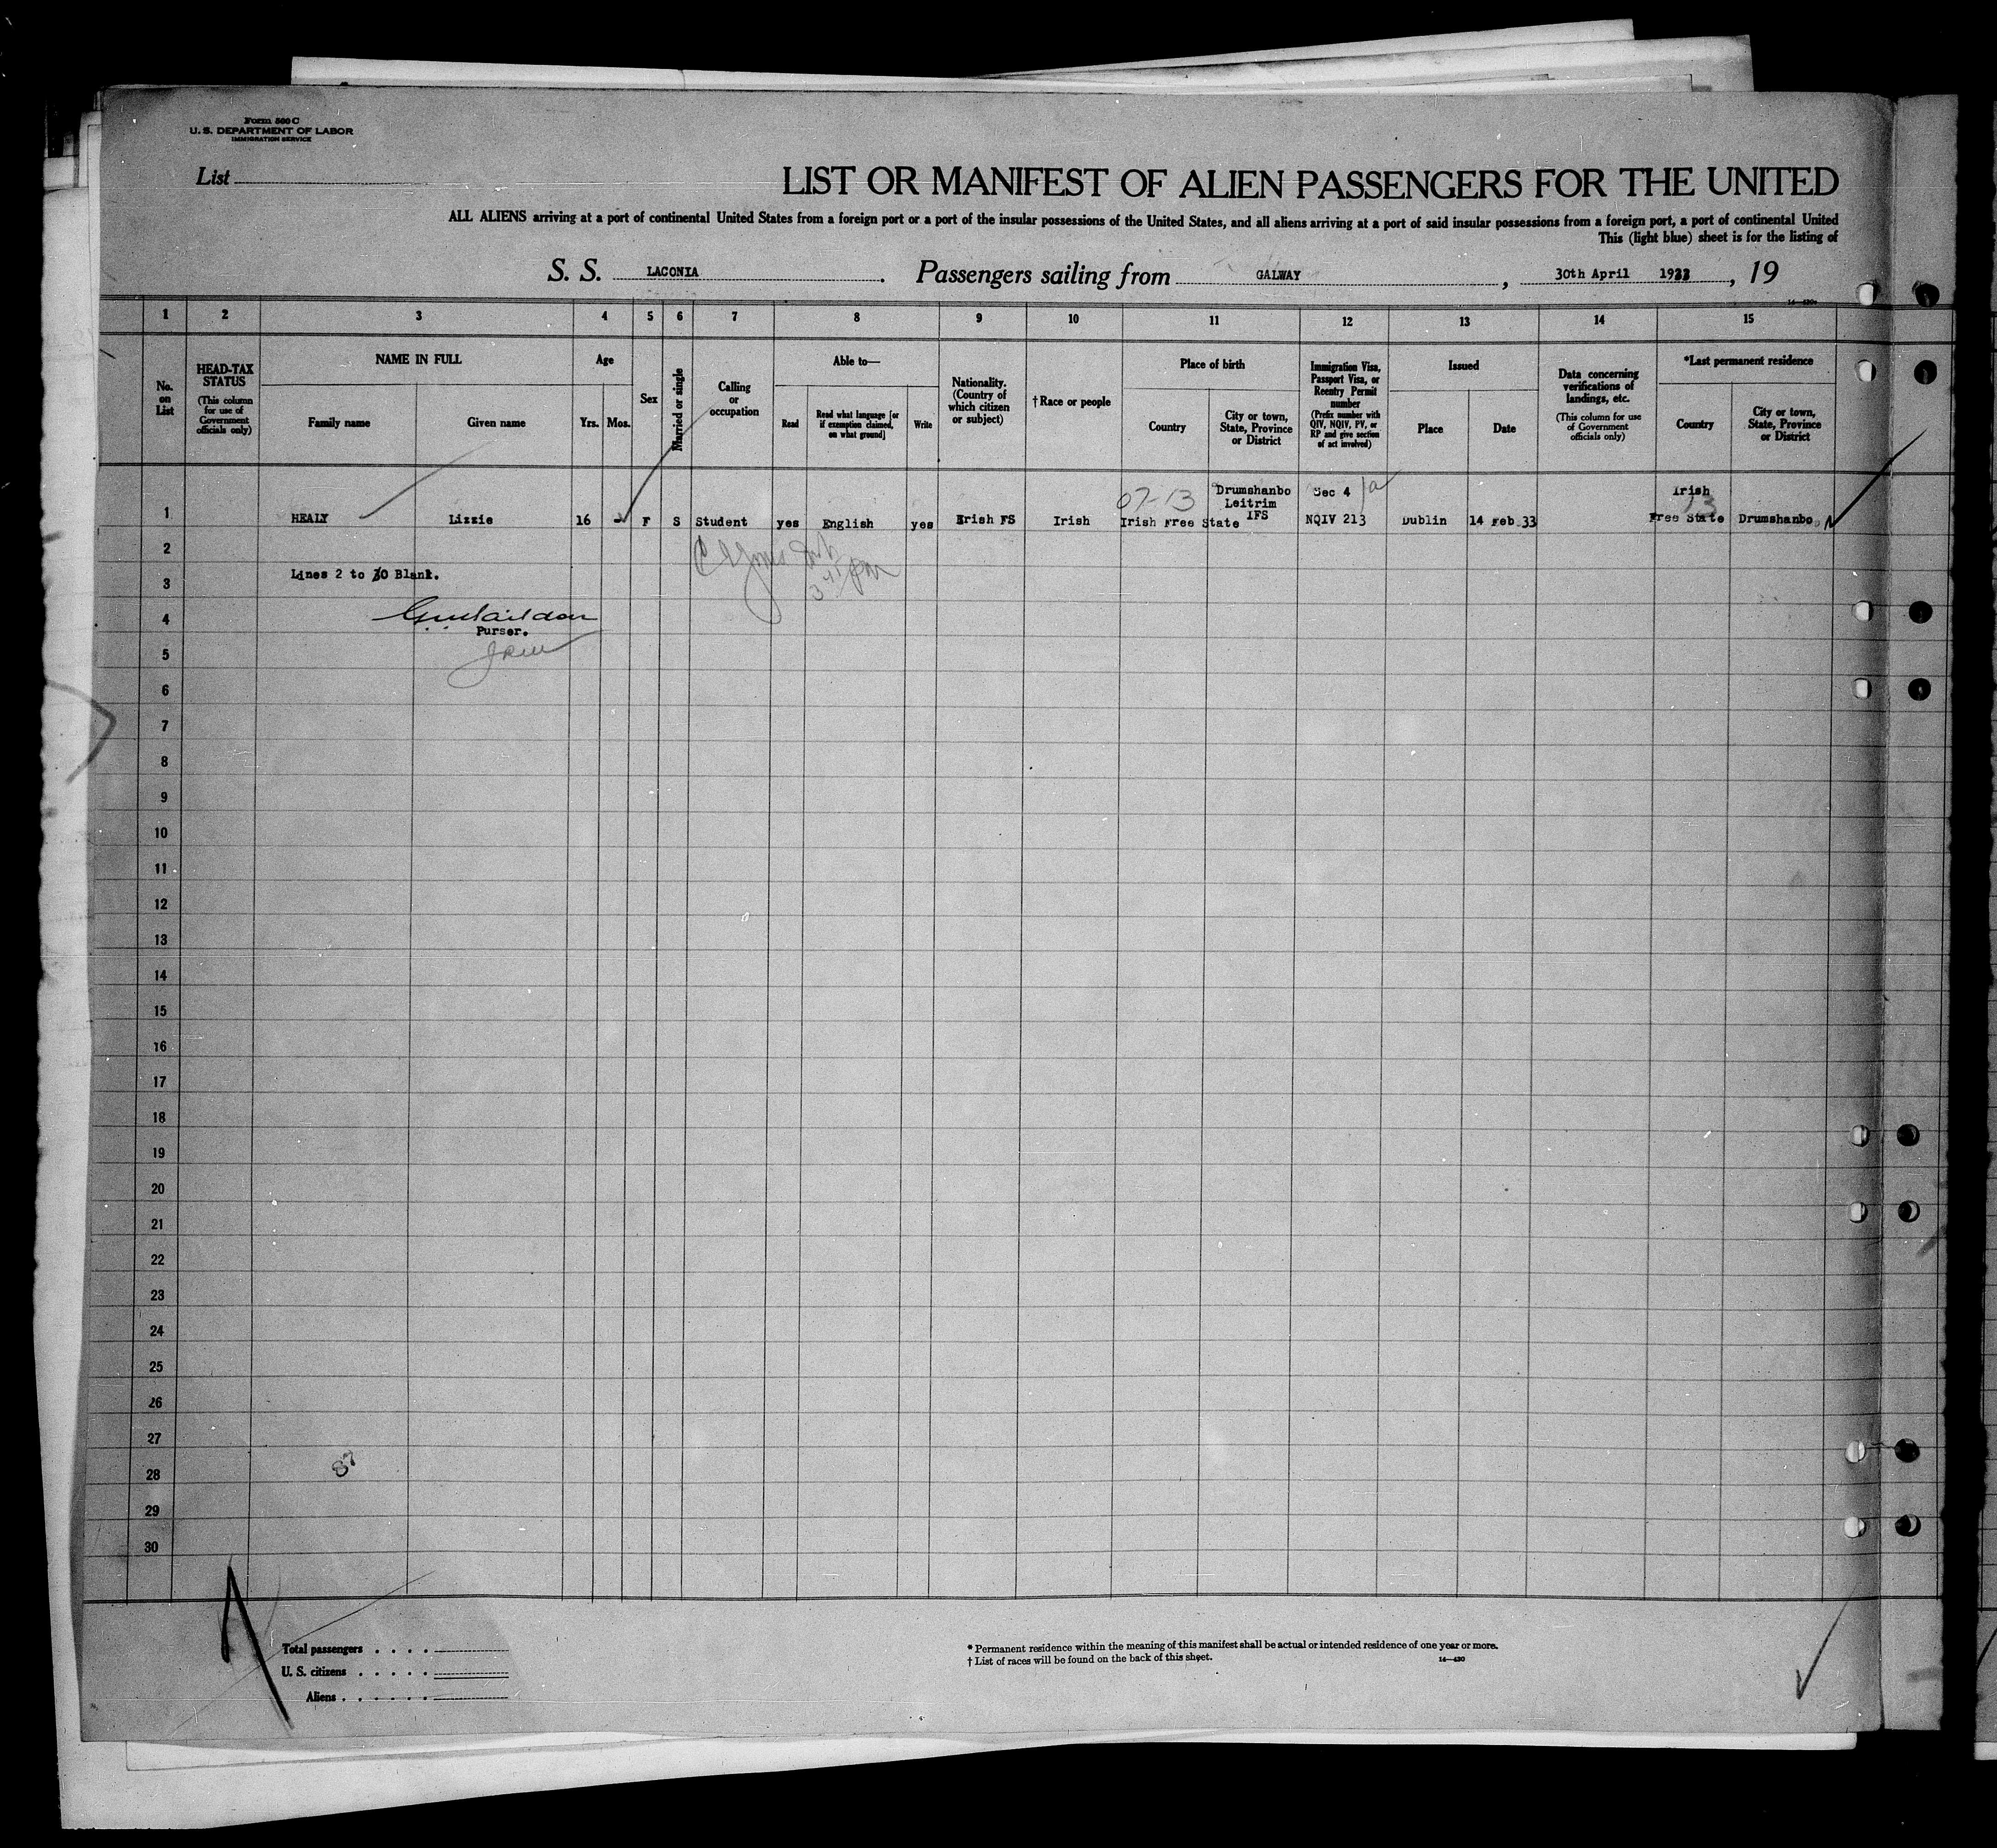 Form 500 C
U. S. DEPARTMENT OF LABOR
IMMIGRATION SERVICE
List
LIST OR MANIFEST OF ALIEN PASSENGERS FOR THE UNITED
ALL ALIENS arriving at a port of continental United States from a foreign port or a port of the insular possessions of the United States, and all aliens arriving at a port of said insular possessions from a foreign port, a port of continental United
This (light blue) sheet is for the listing of
S. S. LACONIA. Passengers sailing from GALWAY, 30th April 1933, 19
1 2 3 4 5 6 7 8 9 10 11 12 13 14 15
No. on List
HEAD-TAX STATUS (This column for use of Government officials only)
NAME IN FULL
Family name
Given name
Age
Yrs.
Mos.
Sex
Married or single
Calling or occupation
Able to—
Read
Read what language [or if exemption claimed, on what ground]
Write
Nationality. (Country of which citizen or subject)
†Race or people
Place of birth
Country
City or town, State, Province or District
Immigration Visa, Passport Visa, or Reentry Permit number (Prefix number with QIV, NQIV, PV, or RP and give section of act involved)
Issued
Place
Date
Data concerning verifications of landings, etc. (This column for use of Government officials only)
*Last permanent residence
Country
City or town, State, Province or District
07-13 Drumshanbo Sec 4 a Irish
Leitrim 13
1 HEALY Lizzie 16 - F S Student yes English yes Irish FS Irish Irish Free State IFS NQIV 213 Dublin 14 Feb 33 Free State Drumshanbo
2
Lines 2 to 30 Blank.
3
4
Purser.
5
6
7
8
9
10
11
12
13
14
15
16
17
18
19
20
21
22
23
24
25
26
27
87
28
29
30
Total passengers
U. S. citizens
Aliens
* Permanent residence within the meaning of this manifest shall be actual or intended residence of one year or more.
† List of races will be found on the back of this sheet. 14—430